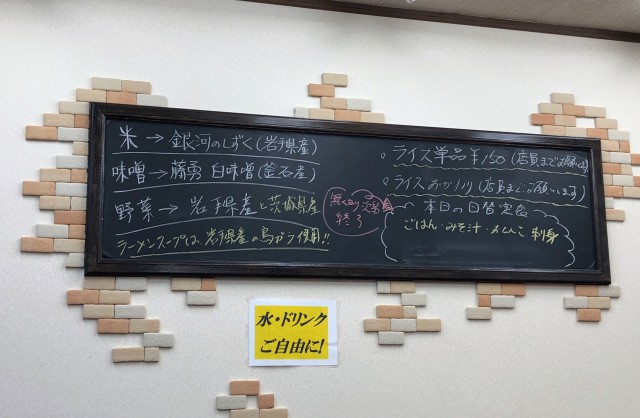 米→銀河のしずく(岩手県産)
味噌→藤勇 白味噌(釜石産)
野菜→岩手県産と茨城県産
ラーメンスープは、岩手県産の鳥がら使用!!
無くなり次第
終了
・ライス単品 ¥150(店員までお願いします)
・ライスおかわり(店員までお願いします)
本日の日替定食
ごはん・みそ汁・
刺身
水・ドリンク
ご自由に!